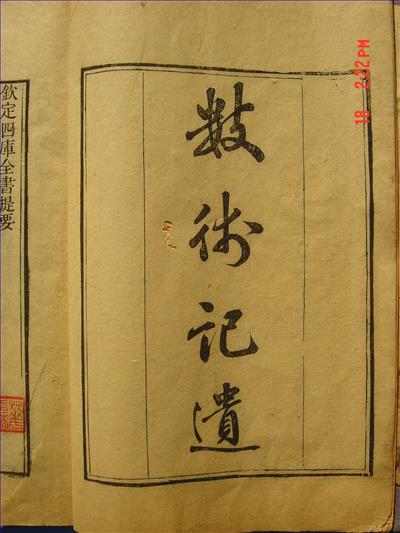 數術記遺
欽定四庫全書提要
18 2:22 PM